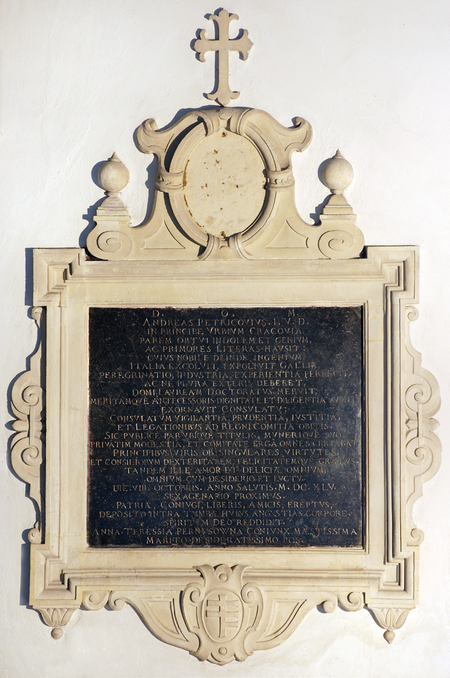 D. O. M
ANDREAS PETRICOVIUS. I. V. D.
IN PRINCIPE VRBIVM CRACOVIA
PAREM ORTVI INDOLEM ET GENIVM,
AC PRIMORES LITERAS HAVSIT:
CVIVS NOBILE DEINDE INGENIVM
ITALIA EXCOLVIT, EXPOLIVIT GALLIA
PEREGRINATIO, INDVSTRIA, EXPERIENTIA PERFECIT.
AC NE PLVRA EXTERIS DEBERET,
DOMI LAVREAM DOCTORATVS MERVIT,
MERITAMQVE ANTECESSORIS DIGNITATE ET DILIGENTIA
EXORNAVIT CONSVLATV:
CONSVLATVM VIGILANTIA, PRVDENTIA, IVSTITIA,
ET LEGATIONIBVS AD REGNI COMITIA OBITIS.
SIC PVBLICE PAR VBIQVE TITVLIS, MVNERIQVE SVO
PRIVATIM MODESTIA, ET COMITATE ERGA OMNES
PRINCIPIBVS VIRIS OB SINGVLARES VIRTVTES,
ET CONSILIORVM DEXTERITATEM, FELICITATEMQ
TANDEM ILLE AMOR ET DELICIÆ OMNIVM,
OMNIVM CVM DESIDERIO ET LVCTV
DIE VIII OCTOBRIS. ANNO SALVTIS M. DC. XLV.
SEXAGENARIO PROXIMVS.
PATRIÆ, CONIVGI, LIBERIS, AMICIS, EREPTVS,
DEPOSITO INTRA TEMPLI HVIVS ANGVSTIAS CORPORE
SPIRITVM DEO REDDIDIT.
ANNA TERESSIA PERNVSOWNA CONIVNX MÆSTISSIMA
MARITO DESIDERATISSIMO POS.